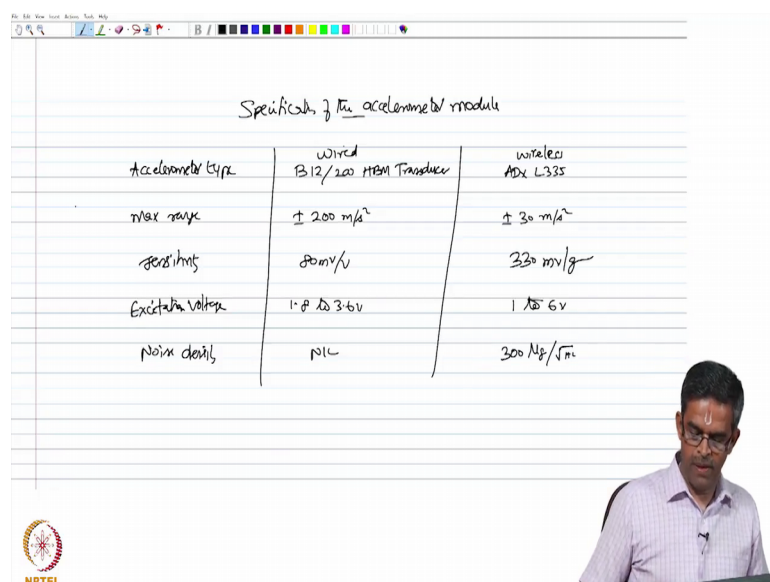 File Edit View Insert Actions Tools Help
B I
Specificats of the accelerometer module
Wired
wireless
Accelerometer type B12/200 HBM Transducer ADX L335
Max range ± 200 m/s² ± 30 m/s²
sensitivity 80mv/v 330 mv/g
Excitation Voltage 1.8 to 3.6v 1 to 6v
Noise density NIL 300 μg/√Hz
NPTEL